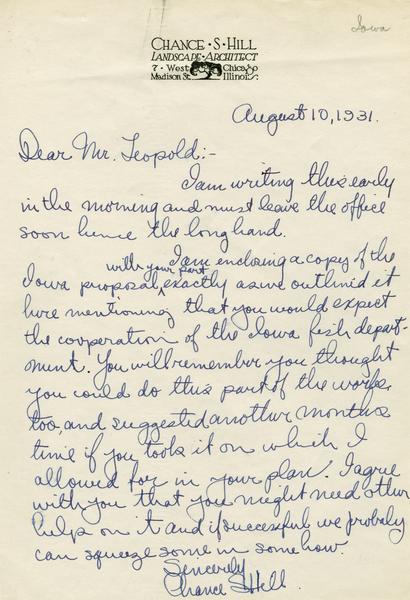 Iowa
CHANCE · S · HILL
LANDSCAPE · ARCHITECT
7 · West Chicago
Madison St. Illinois.
August 10, 1931.
Dear Mr. Leopold:-
I am writing this early
in the morning and must leave the office
soon hence the long hand.
I am enclosing a copy of the
with your part
Iowa proposal, exactly as we outlined it
here mentioning that you would expect
the cooperation of the Iowa fish depart-
ment. You will remember you thought
you could do this part of the work,
too, and suggested another months
time if you took it on which I
allowed for in your plan. I agree
with you that you might need other
help on it and if successful we probably
can squeeze some in some how.
Sincerely
Chance S Hill.